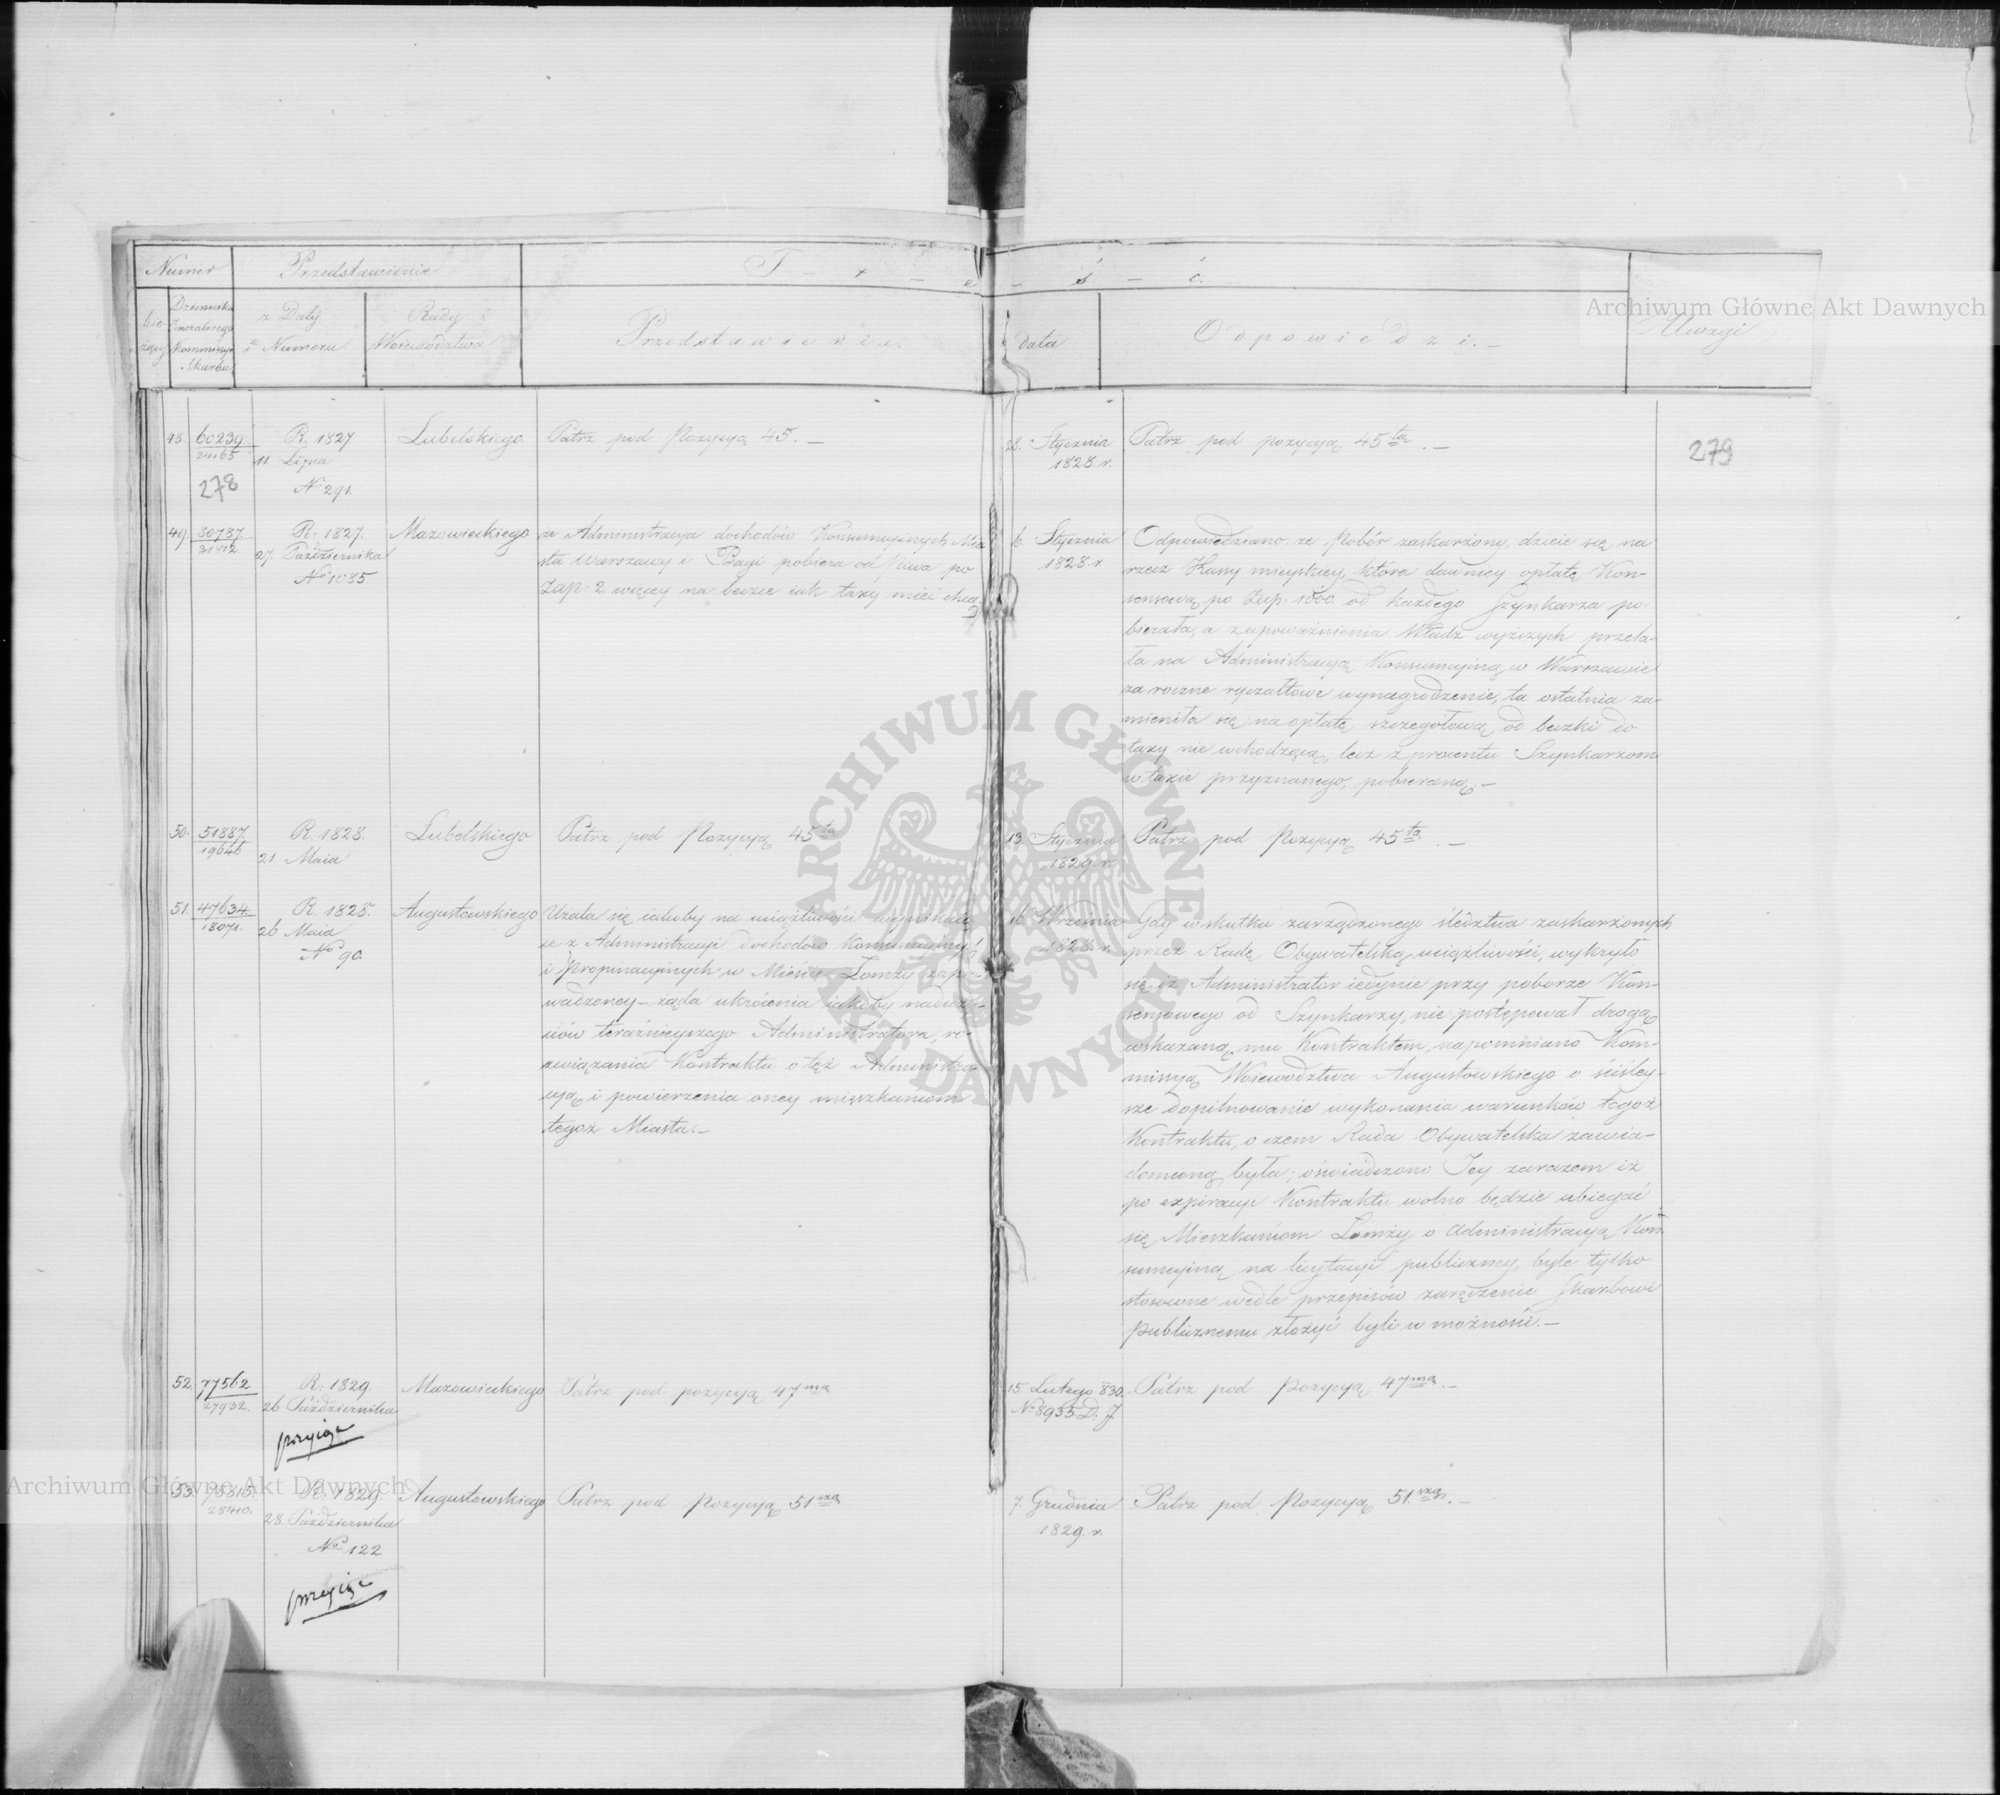 Numer
Przedstawienie
T - r - e - ś - ć.
bieżący
Dziennika Jeneralnego Kommissyi Skarbu
z Daty i Numeru
Rady i Województwa
Przedstawienia.
data
Odpowiedzi. -
Uwagi
48.
60239.
24165
R. 1827
11 Lipca
No 291.
Lubelskiego
Patrz pod Pozycyą 45. —
28. Stycznia
1828. r.
Patrz pod pozycyą 45ta. —
278
279
49.
80737.
31812.
R. 1827.
27. Października
No 1085
Mazowieckiego
że Administracya dochodów Konsumcyinych Mia
sta Warszawy i Pragi pobiera od Piwa po
Złp. 2 więcey na beczce iak taxy mieć chcą
6 Stycznia
1828. r.
Odpowiedziano: że Pobór zaskarżony, dzieie się na
rzecz Kassy mieyskiey, która dawniey opłatę Kon-
sensową po Złp. 1000 od każdego Szynkarza po-
bierała, a z upoważnienia Władz wyższych przela-
ła na Administracyą Konsumcyiną w Warszawie
za roczne ryczałtowe wynagrodzenie, ta ostatnia za-
mieniła się na opłatę szczegółową od beczki do
taxy nie wchodzącą, lecz z procentu Szynkarzom
w taxie przyznanego, pobieraną. —
50.
51887.
19646
R. 1828.
21 Maia
Lubelskiego
Patrz pod Pozycyą 45ta
13 Stycznia
1829. r.
Patrz pod Pozycyą 45ta. —
51.
47634.
18071.
R. 1828.
26 Maia
No 90.
Augustowskiego
Użala się iakoby na uciążliwości wynikaią
ce z Administracyi dochodów Konsumcyinych
i Propinacyinych w Mieście Łomży zapro
wadzoney — żąda ukrócenia iakoby naduży-
ciów teraźnieyszego Administratora, ro-
związania Kontraktu o też Administra-
cyą i powierzenia oney mieszkańcom
tegoż Miasta. —
16 Września
1828. r.
Gdy w skutku zarządzonego śledztwa zaskarżonych
przez Radę Obywatelską uciążliwości, wykryło
się, iż Administrator iedynie przy poborze Kon-
sensowego od Szynkarzy, nie postępował drogą
wskazaną mu Kontraktem, napomniano Kom-
missyą Woiewództwa Augustowskiego o ściśley-
sze dopilnowanie wykonania warunków tegoż
Kontraktu, o czem Rada Obywatelska zawia-
domioną była; oświadczono Jey zarazem iż
po expiracyi Kontraktu wolno będzie ubiegać
się Mieszkańcom Łomży o Administracyą Kon-
sumcyiną na licytacyi publiczney, byle tylko
stosowne wedle przepisów zaręczenie Skarbowi
Publicznemu złożyć byli w możności. —
52.
77562
27932.
R. 1829.
26 Października
przyięte
Mazowieckiego
Patrz pod pozycyą 47mą
15 Lutego 830.
No 8935 D. J
Patrz pod Pozycyą 47mą. —
53.
28410.
R. 1829.
28 Października
No 122
przyięte
Augustowskiego
Patrz pod Pozycyą 51wszą
7 Grudnia
1829. r.
Patrz pod Pozycyą 51.wszą. —
Archiwum Główne Akt Dawnych
Archiwum Główne Akt Dawnych
ARCHIWUM GŁÓWNE
AKT DAWNYCH